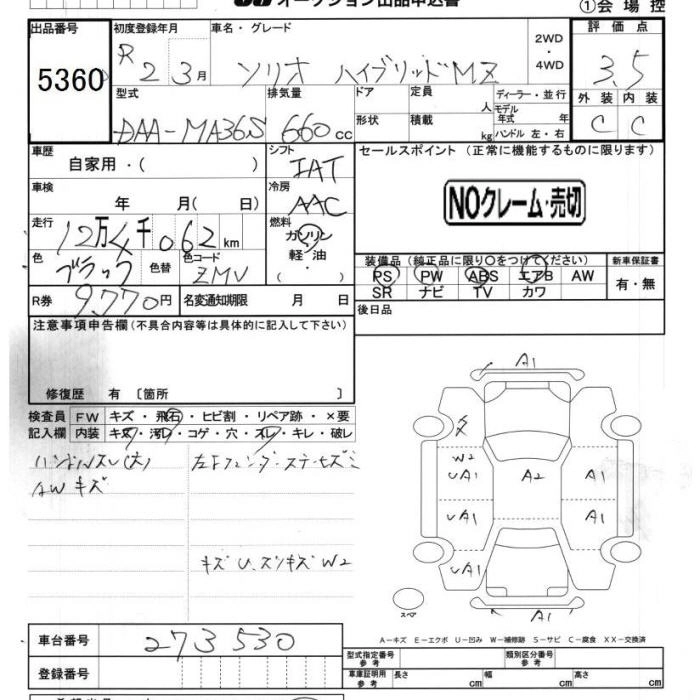 オークション出品申込書
①会場控
出品番号 初度登録年月 車名・グレード 2WD・4WD 評価点
5360 R2 3月 ソリオ ハイブリッドMZ 3.5
型式 排気量 ドア 定員 人 ディーラー・並行 外装 内装
DAA-MA36S 660cc 形状 積載 kg モデル年式 年 ハンドル 左・右 C C
車歴 シフト セールスポイント (正常に機能するものに限ります)
自家用・( ) IAT
車検 冷房 NOクレーム・売切
年 月( 日) AAC
走行 燃料
12万4千062km ガソリン・軽油・( )
色 色替 色コード 装備品 (純正品に限り○をつけてください) 新車保証書
ブラック ZMV PS PW ABS エアB AW 有・無
R券 9,770円 名変通知期限 月 日 SR ナビ TV カワ
注意事項申告欄 (不具合内容等は具体的に記入して下さい) 後日品
修復歴 有 〔箇所 〕
A1
検査員 FW キズ・飛石・ヒビ割・リペア跡・×要
記入欄 内装 キズ・汚レ・コゲ・穴・スレ・キレ・破レ
ハンドルスレ(大)
AWキズ
W2
UA1 A2 A1
UA1 A1
キズU、スリキズW2
UA1
スペア
A1
A-キズ E-エクボ U-凹み W-補修跡 S-サビ C-腐食 XX-交換済
車台番号 273530
型式指定番号 参考 類別区分番号 参考
登録番号
車庫証明用 参考 長さ cm 幅 cm 高さ cm